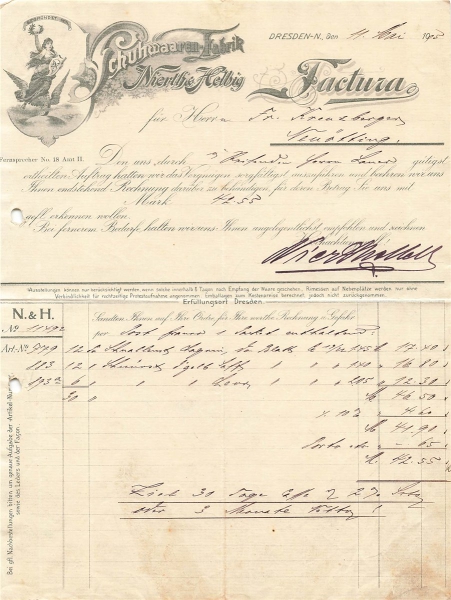 Schuhwaaren-Fabrik
Nierth & Helbig
DRESDEN-N., den 11. Mai 1905
Factura
für Herrn Fr. Kreuzberger
Neuötting.
Fernsprecher No. 18, Amt II.
Den uns durch Reisenden Herrn gütigst
ertheilten Auftrag hatten wir das Vergnügen sorgfältigst auszuführen und beehren wir uns
Ihnen enstehend Rechnung darüber zu behändigen für deren Betrag Sie uns mit
Mark 42.55
aufl. erkennen wollen.
Bei fernerem Bedarf halten wir uns Ihnen angelegentlichst empfohlen und zeichnen
Hochachtungsvoll
Ausstellungen können nur berücksichtigt werden, wenn solche innerhalb 8 Tagen nach Empfang der Waare geschehen. Rimessen auf Nebenplätze werden nur ohne
Verbindlichkeit für rechtzeitige Protestaufnahme angenommen. Emballagen zum Kostenpreise berechnet, jedoch nicht zurückgenommen.
Erfüllungsort Dresden.
N. & H.
Sandten Ihnen auf Ihre Ordre für Ihre werthe Rechnung u. Gefahr
No. 11492
per Post franco 1 Packet enthaltend:
Art-No. 12 145 17.40
883 12 140 16.80
6 205 12.30
30 M 46.50
% 10% 4.60
M 41.90
Porto - 65
M 42.55
Ziel 30 Tage 2% Sco
oder 3 Monate
Bei gfl. Nachbestellungen bitten um genaue Aufgabe der Artikel-Nummer
sowie des Leders und der Façon.